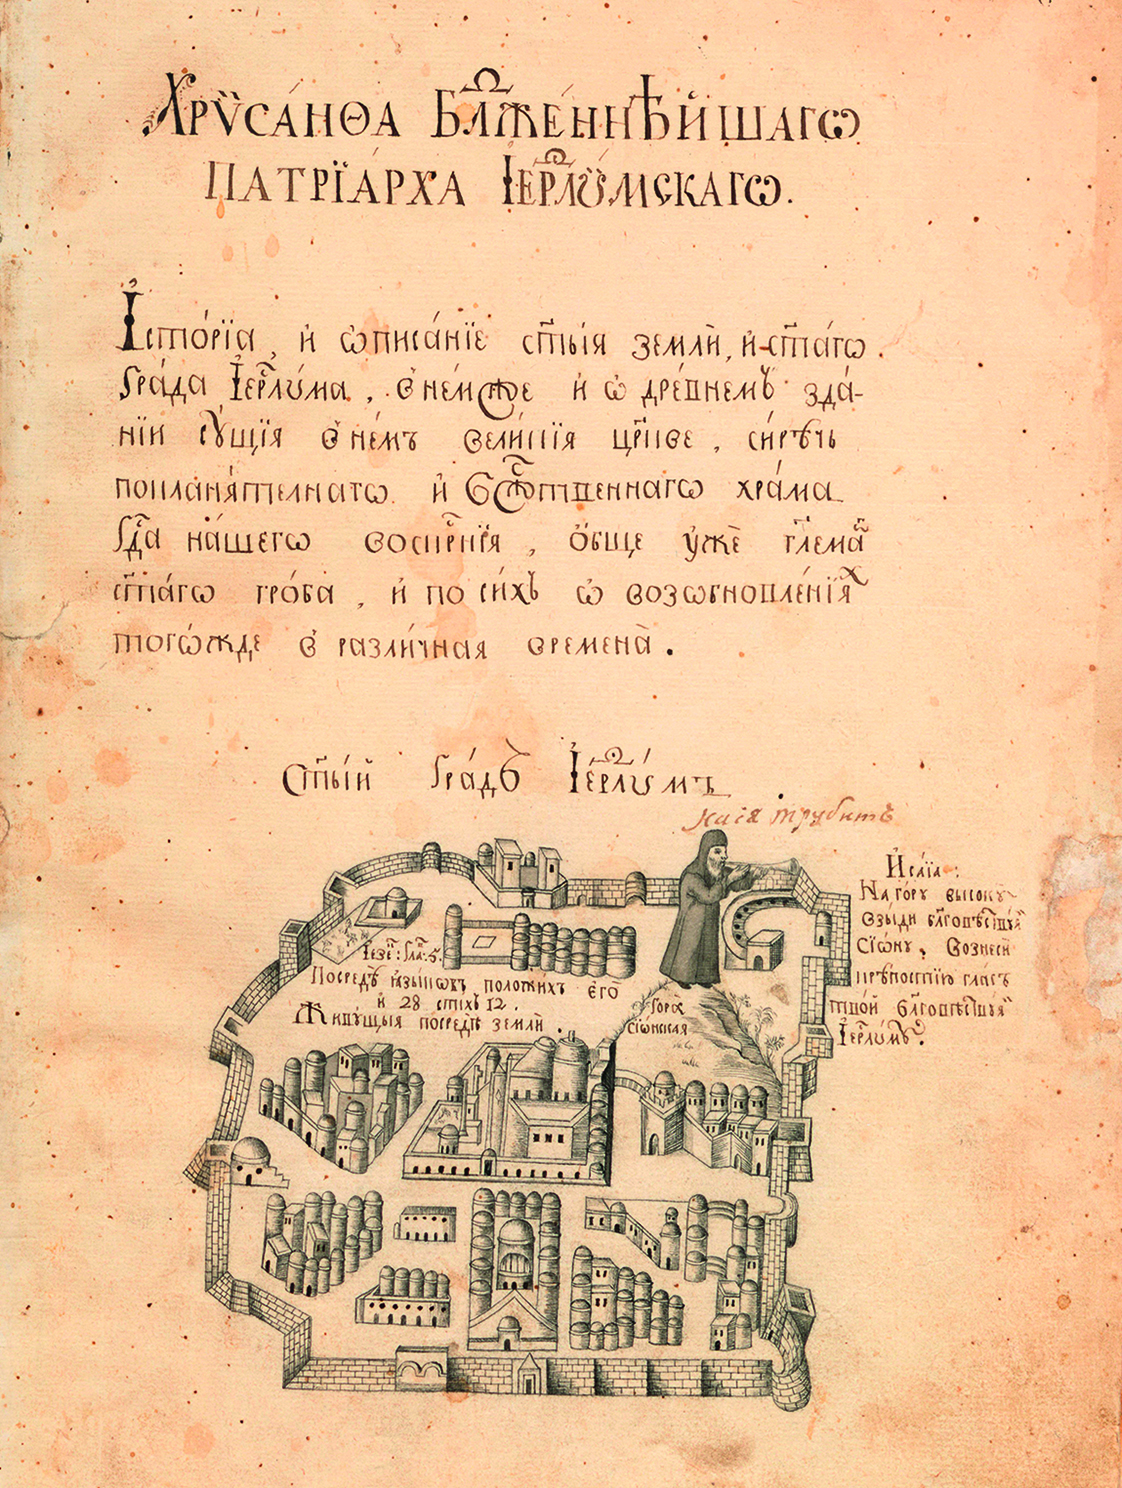 Хрѷса́нѳа Бл҃же́ннѣйшагѡ
Патрїа́рха Іер҃лꙋ́мскагѡ.
Исто́рїа, и҆ ѡ҆писа́нїе ст҃ы́ѧ земли̂, и҆ ст҃а́гѡ
Гра́да Іер҃ли́ма, в не́мже и҆ ѡ҆ дре́внемъ зда́-
нїи сꙋ́щїѧ в не́мъ вели́кїѧ цр҃кве, си́рѣчь
поклонѧ́телнагѡ и҆ бж҃е́ственнагѡ хра́ма
гд҇а на́шегѡ воскр҇нїѧ, ѻ҆́бще ᲂу҆́же гл҃ема
ст҃а́гѡ гро́ба, и҆ по си́хъ ѡ҆ возѡбновле́нїѧх
тогѡ́жде в разли́чнаѧ времена̀.
Ст҃ы́й Гра́дъ Іер҃лꙋ́мъ
трубитъ
Иса́їа:
На гѻрꙋ высокꙋ
взыди бл҃говѣствꙋѧ
Сїѡнꙋ, Вознеси
крѣпостїю гласъ
твой бл҃говѣствꙋѧ
Іер҃лимꙋ.
Іезе: Гла: 5.
Посредѣ ꙗзыковъ положихъ его
и 28 стихъ 12.
Живꙋщыѧ посредѣ земли.
Гора
Сїѡнскаѧ